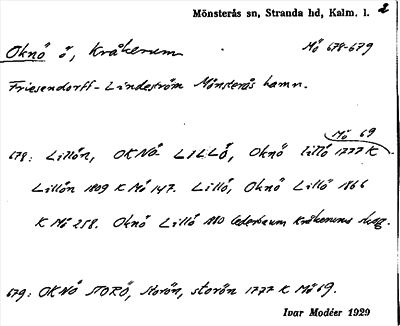 Mönsterås sn, Stranda hd, Kalm. l. 2
Oknö ö, Kråkerum Mö 678-679
Friesendorff-Lindeström Mönsterås hamn.
Mö 69
678: Lillön, OKNÖ LILLÖ, Oknö lillö 1777 K
Lillön 1809 K Mö 147. Lillö, Oknö Lillö 1866
K Mö 258. Oknö Lillö 1880 Cederbaum Kråkerums
679: OKNÖ STORÖ, Storön, storön 1777 K Mö 69.
Ivar Modéer 1929